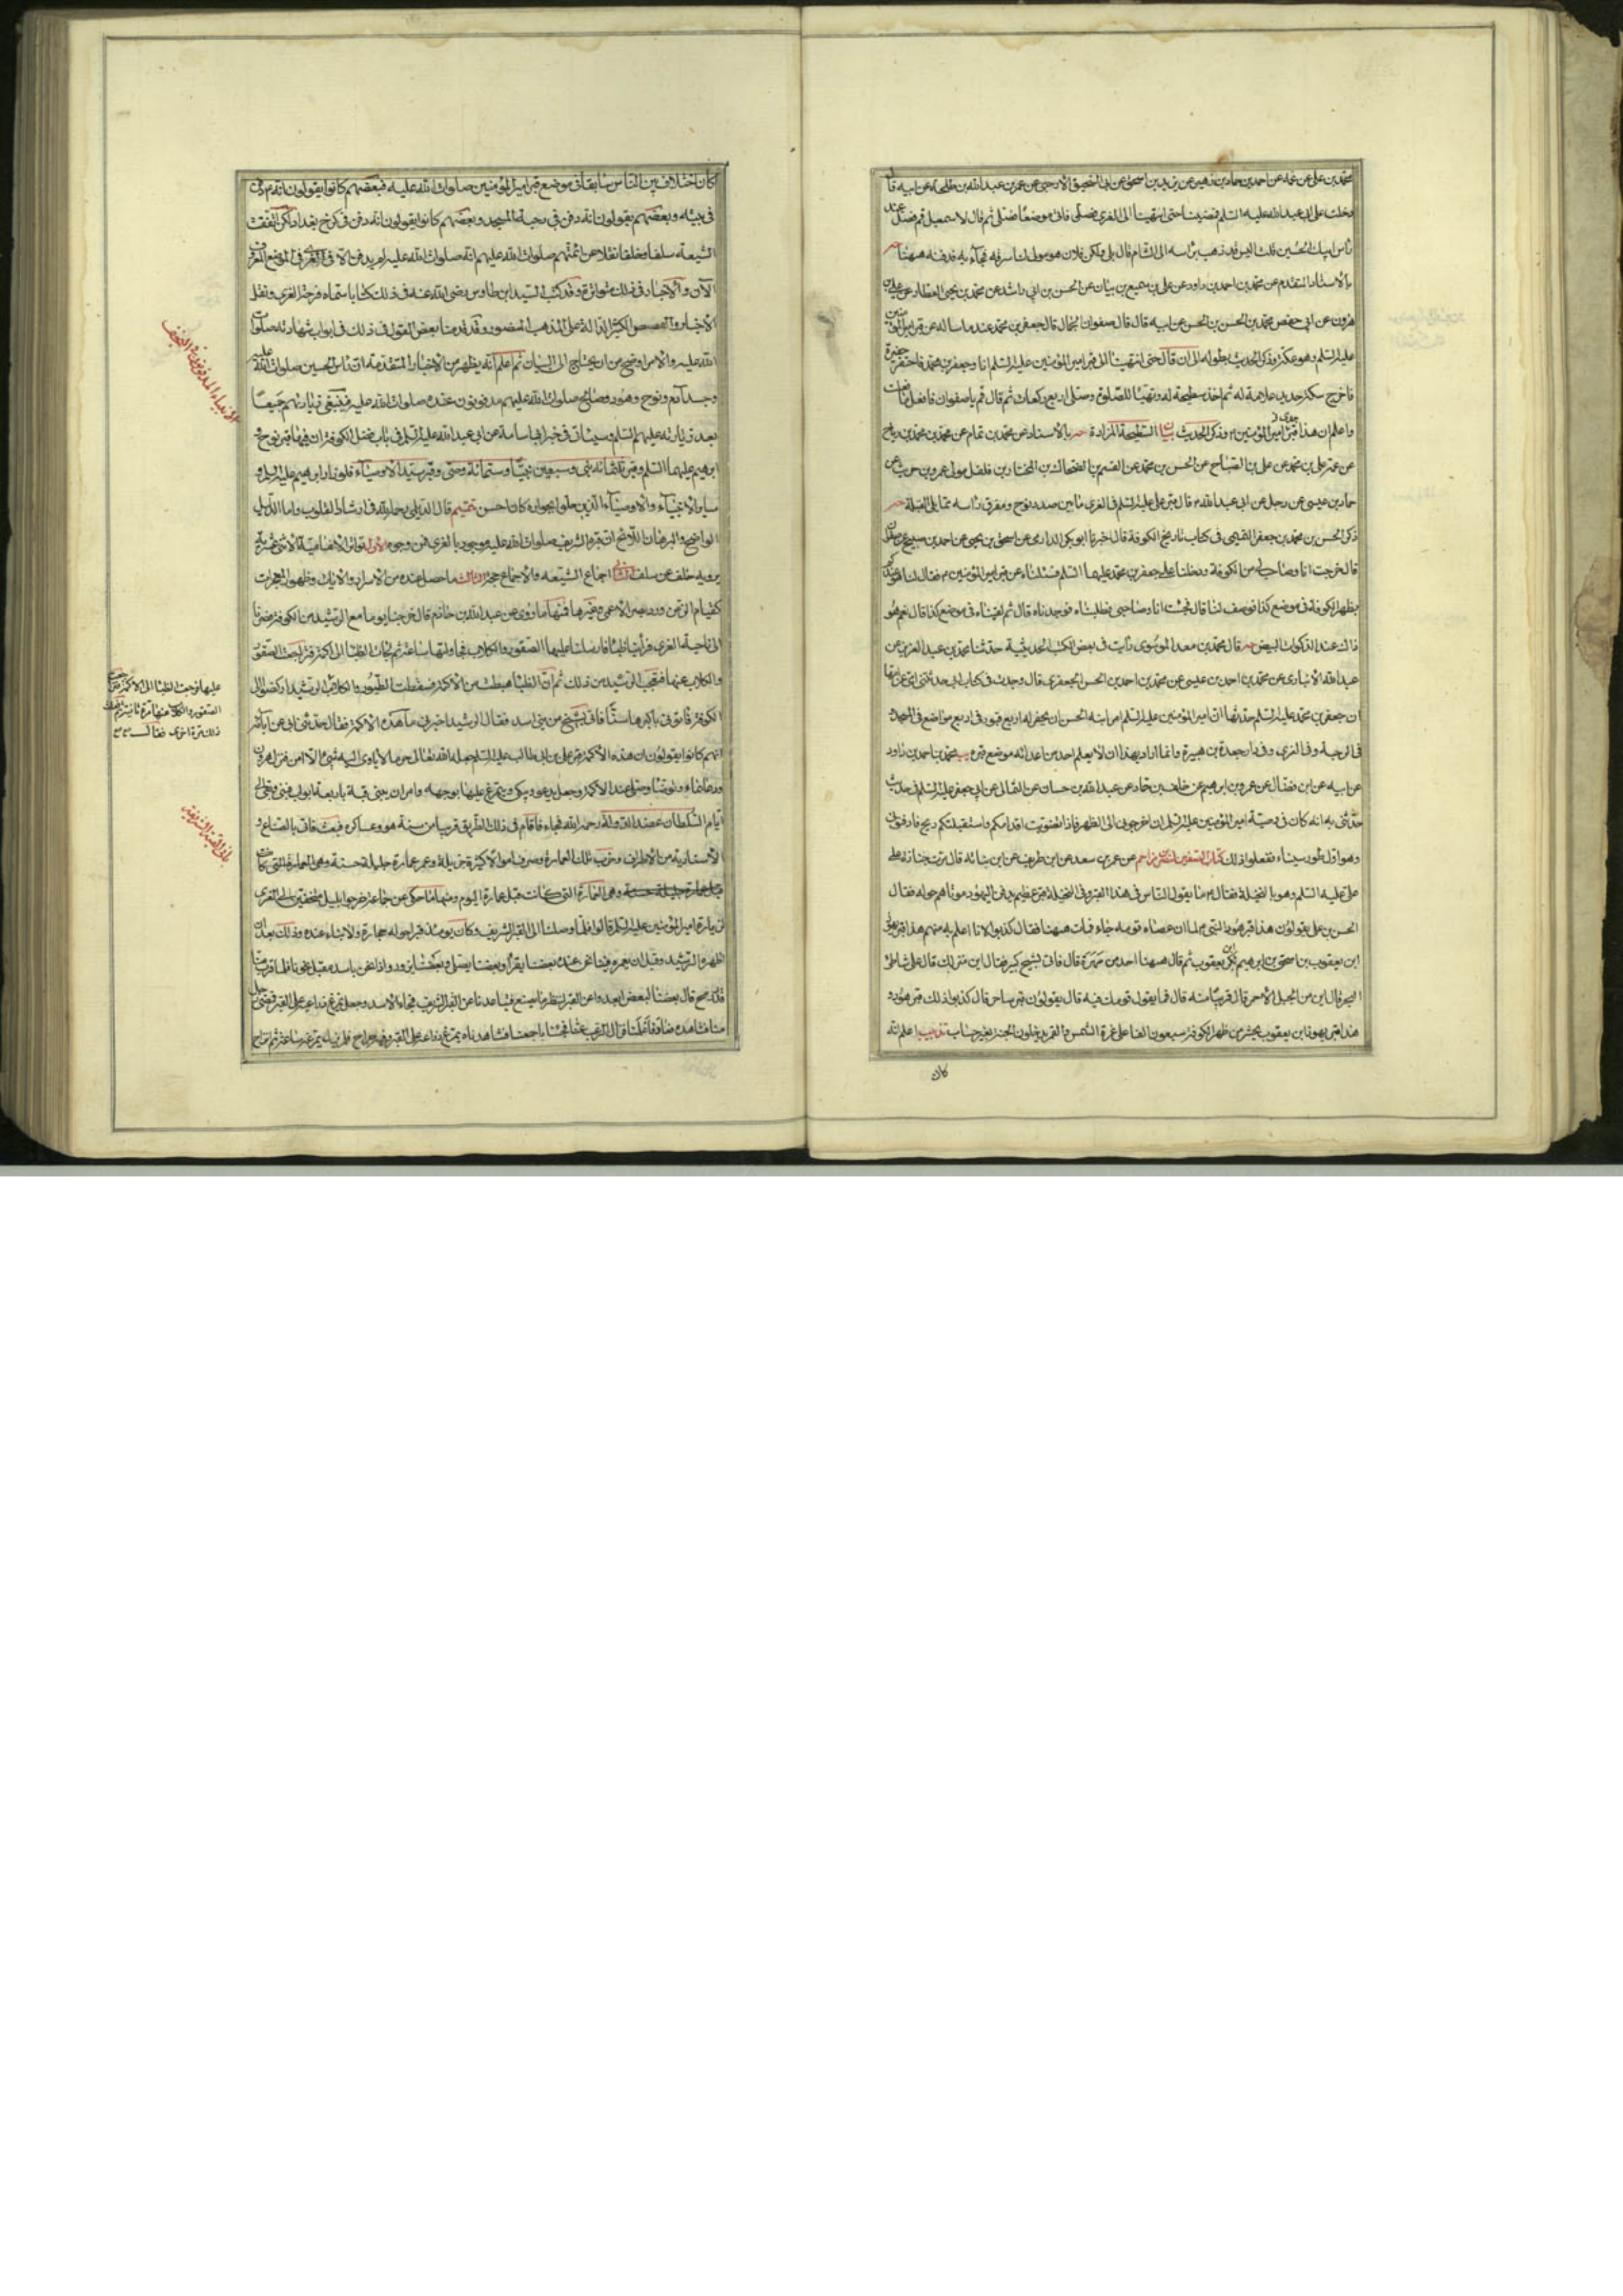 محمد بن علي عن عمه عن احمد بن حماد بن زهير عن يزيد بن اسحق عن ابي السحيق الارحبي عن عمر بن عبد الله بن طلحة عن ابيه قال
دخلت على ابي عبد الله عليه السلم فمضينا حتى انتهينا الى الغري فصلى فاتى موضعا فصلى ثم قال لاسمعيل قم فصل عند
راس ابيك الحسين قلت اليس قد ذهب براسه الى الشام قال بلى ولكن فلان هو مولى لنا سرقه فجآء به فدفنه ههنا حه
بالاسناد المتقدم عن محمد بن احمد بن داود عن علي بن سميع بن بيان عن الحسن بن ابي راشد عن محمد بن يحيى العطار عن
هرون عن ابي حفص محمد بن الحسن بن الحسن عن ابيه قال قال صفوان الجمال قال جعفر بن محمد عند ما ساله عن قبر امير المؤمنين
عليه السلم وهو عكنز وذكر الحديث بطوله الى ان قال حتى انتهينا الى قبر امير المؤمنين عليه السلم انا وجعفر بن محمد فاحتفر حفيرة
فاخرج سكة حديد علامة له ثم اخذ سطيحة له وتهيئا للصلوة وصلى اربع ركعات ثم قال قم يا صفوان فافعل ما فعلت
واعلم ان هذا قبر جدي امير المؤمنين م وذكر الحديث بيان السطيحة المزادة حه بالاسناد عن محمد بن تمام عن محمد بن محمد بن رباح
عن عمه علي بن محمد عن علي بن الصباح عن الحسن بن محمد عن القسم بن الضحاك بن المختار بن فلفل مولى عمرو بن حريث عن
حماد بن عيسى عن رجل عن ابي عبد الله م قال قبر علي عليه السلم في الغري ما بين صدر نوح ومفرق راسه مما يلي القبلة حه
ذكر الحسن بن محمد بن جعفر التميمي في كتاب تاريخ الكوفة قال اخبرنا ابو بكر الدارمي عن اسحق بن يحيى عن احمد بن صبيح عن صفوان
قال خرجت انا وصاحب لي من الكوفة ودخلنا على جعفر بن محمد عليهما السلم فسئلناه عن قبر امير المؤمنين م فقال لنا هو عندكم
بظهر الكوفة في موضع كذا فوصف لنا قال فجئت انا وصاحبي فطلبناه فوجدناه قال ثم لقيناه في موضع كذا قال نعم هو
ذاك عند الذكوات البيض حه قال محمد بن معد الموسوي رايت في بعض الكتب الحديثية حدثنا محمد بن عبد العزيز عن
عبد الله الانباري عن محمد بن احمد بن عيسى عن محمد بن احمد بن الحسن الجعفري قال وجدت في كتاب ابي حدثتني امي عن امها
ان جعفر بن محمد عليه السلم حدثها ان امير المؤمنين عليه السلم امر ابنه الحسن ان يحفر له اربع قبور في اربع مواضع في المسجد
في الرحبة وفي الغري وفي دار جعدة بن هبيرة وانما اراد بهذا ان لا يعلم احد من اعدائه موضع قبره يب محمد بن احمد بن داود
عن ابيه عن ابن فضال عن عمرو بن ابرهيم عن خلف بن حماد عن عبد الله بن حسان عن الثمالي عن ابي جعفر عليه السلم في حديث
حدثني به انه كان في وصية امير المؤمنين عليه السلم ان اخرجوني الى الظهر فاذا تصوبت اقدامكم واستقبلتكم ريح فادفنوني
وهو اول طور سيناء ففعلوا ذلك كتاب الصفين لنصر بن مزاحم عن عمر بن سعد عن ابن طريف عن ابن نباته قال مرت جنازة على
علي عليه السلم وهو بالنخيلة فقال م ما يقول الناس في هذا القبر وفي النخيلة قبر عظيم يدفن اليهود موتاهم حوله فقال
الحسن بن علي يقولون هذا قبر هود النبي م لما ان عصاه قومه جاء فمات ههنا فقال كذبوا لانا اعلم به منهم هذا قبر يهودا
ابن يعقوب بن اسحق بن ابرهيم بكر يعقوب ثم قال ههنا احد من مهرة قال فاتي بشيخ كبير فقال اين منزلك قال على شاطئ
البحر قال اين من الجبل الاحمر قال قريبا منه قال فما يقول قومك فيه قال يقولون قبر ساحر قال كذبوا ذلك قبر هود و
هذا قبر يهودا بن يعقوب يحشر من ظهر الكوفة سبعون الفا على غرة الشمس والقمر يدخلون الجنة بغير حساب تذييب اعلم انه
كان
كان اختلاف بين الناس سابقا في موضع قبر امير المؤمنين صلوات الله عليه فبعضهم كانوا يقولون انه دفن
في بيته وبعضهم يقولون انه دفن في رحبة المسجد وبعضهم كانوا يقولون انه دفن في كرخ بغداد لكن اتفقت
الشيعة سلفا وخلفا نقلا عن ائمتهم صلوات الله عليهم انه صلوات الله عليه لم يدفن الا في الغري في الموضع المعروف
الآن والاخبار في ذلك متواترة وقد كتب السيد ابن طاوس رضي الله عنه في ذلك كتابا سماه فرحة الغري ونقل
الاخبار والقصص الكثيرة الدالة على المذهب المنصور وقد قدمنا بعض القول في ذلك في ابواب شهادته صلوات
الله عليه والامر اوضح من ان يحتاج الى البيان ثم اعلم انه يظهر من الاخبار المتقدمة ان راس الحسين صلوات الله عليه
وجسد آدم ونوح وهود وصالح صلوات الله عليهم مدفونون عنده صلوات الله عليه فينبغي زيارتهم جميعا
بعد زيارته عليهم السلم وسياتي في خبر ابي اسامة عن ابي عبد الله عليه السلم في باب فضل الكوفة ان فيها قبر نوح و
ابرهيم عليهما السلم وقبر ثلثمائة نبي وسبعين نبيا وستمائة وصي وقبر سيد الاوصياء فلو زار ابرهيم عليه السلم و
ساير الانبياء والاوصياء الذين حلوا بجواره كان احسن تتميم قال الديلمي رحمه الله في ارشاد القلوب واما الدليل
الواضح والبرهان اللائح ان قبره الشريف صلوات الله عليه موجود بالغري فمن وجوه الاول تواتر الامامية الاثنى عشرية
يرويه خلف عن سلف الثاني اجماع الشيعة والاجماع حجة الثالث ما حصل عنده من الاسرار والايات وظهور المعجزات
كقيام الزمن ورد بصر الاعمى وغيرها فمنها ما روي عن عبد الله بن خازم قال خرجنا يوما مع الرشيد من الكوفة فصرنا
الى ناحية الغري فرأينا ظباء فارسلنا عليها الصقور والكلاب فجاولتها ساعة ثم لجات الظباء الى اكمة فتراجعت الصقور
والكلاب عنها فتعجب الرشيد من ذلك ثم ان الظباء هبطت من الاكمة فسقطت الطيور والكلاب الرشيد اركضوا الى
الكوفة فاتوني باكبرها سنا فاتي بشيخ من بني اسد فقال الرشيد اخبرني ما هذه الاكمة فقال حدثني ابي عن آبائه
انهم كانوا يقولون ان هذه الاكمة قبر علي بن ابي طالب عليه السلم جعله الله تعالى حرما لا ياوي اليه شيء الا امن فنزل هرون
ودعا بماء وتوضا وصلى عند الاكمة وجعل يدعو ويبكي ويتمرغ عليها بوجهه وامر ان يبنى قبة باربعة ابواب فبني وبقي الى
ايام السلطان عضد الدولة رحمه الله فجاء فاقام في ذلك الطريق قريبا من سنة هو وعساكره فبعث فاتي بالصناع و
الاستادية من الاطراف وخرب تلك العمارة وصرف اموالا كثيرة جزيلة وعمر عمارة جليلة حسنة وهي العمارة التي كانت
قبل عمارة اليوم ومنها ما حكي عن جماعة خرجوا بليل مختفين الى الغري
لزيارة امير المؤمنين عليه السلم قالوا فلما وصلنا الى القبر الشريف وكان يومئذ قبرا حوله حجارة ولا بناء عنده وذلك بعد ان
اظهره الرشيد وقبل ان يعمره فبينا نحن عنده بعضنا يقرأ وبعضنا يصلي وبعضنا يزور واذا نحن باسد مقبل نحونا فلما قرب منا
قدر رمح قال بعضنا لبعض ابعدوا عن القبر لننظر ما يصنع فتباعدنا عن القبر الشريف فجاء الاسد وجعل يمرغ ذراعيه على القبر فمضى رجل
منا فشاهده فعاد فاعلمنا فزال الرعب عنا فجئنا باجمعنا فشاهدناه يمرغ ذراعه على القبر وفيه جراح فلم يزل يمرغه ساعة ثم انزاح
الانبياء المدفونون في النجف
عليها فرجعت الظباء الى الاكمة فتراجعت
الصقور والكلاب عنها مرة ثانية ثم فعلت
ذلك مرة اخرى فقال
باني القبة الشريفة